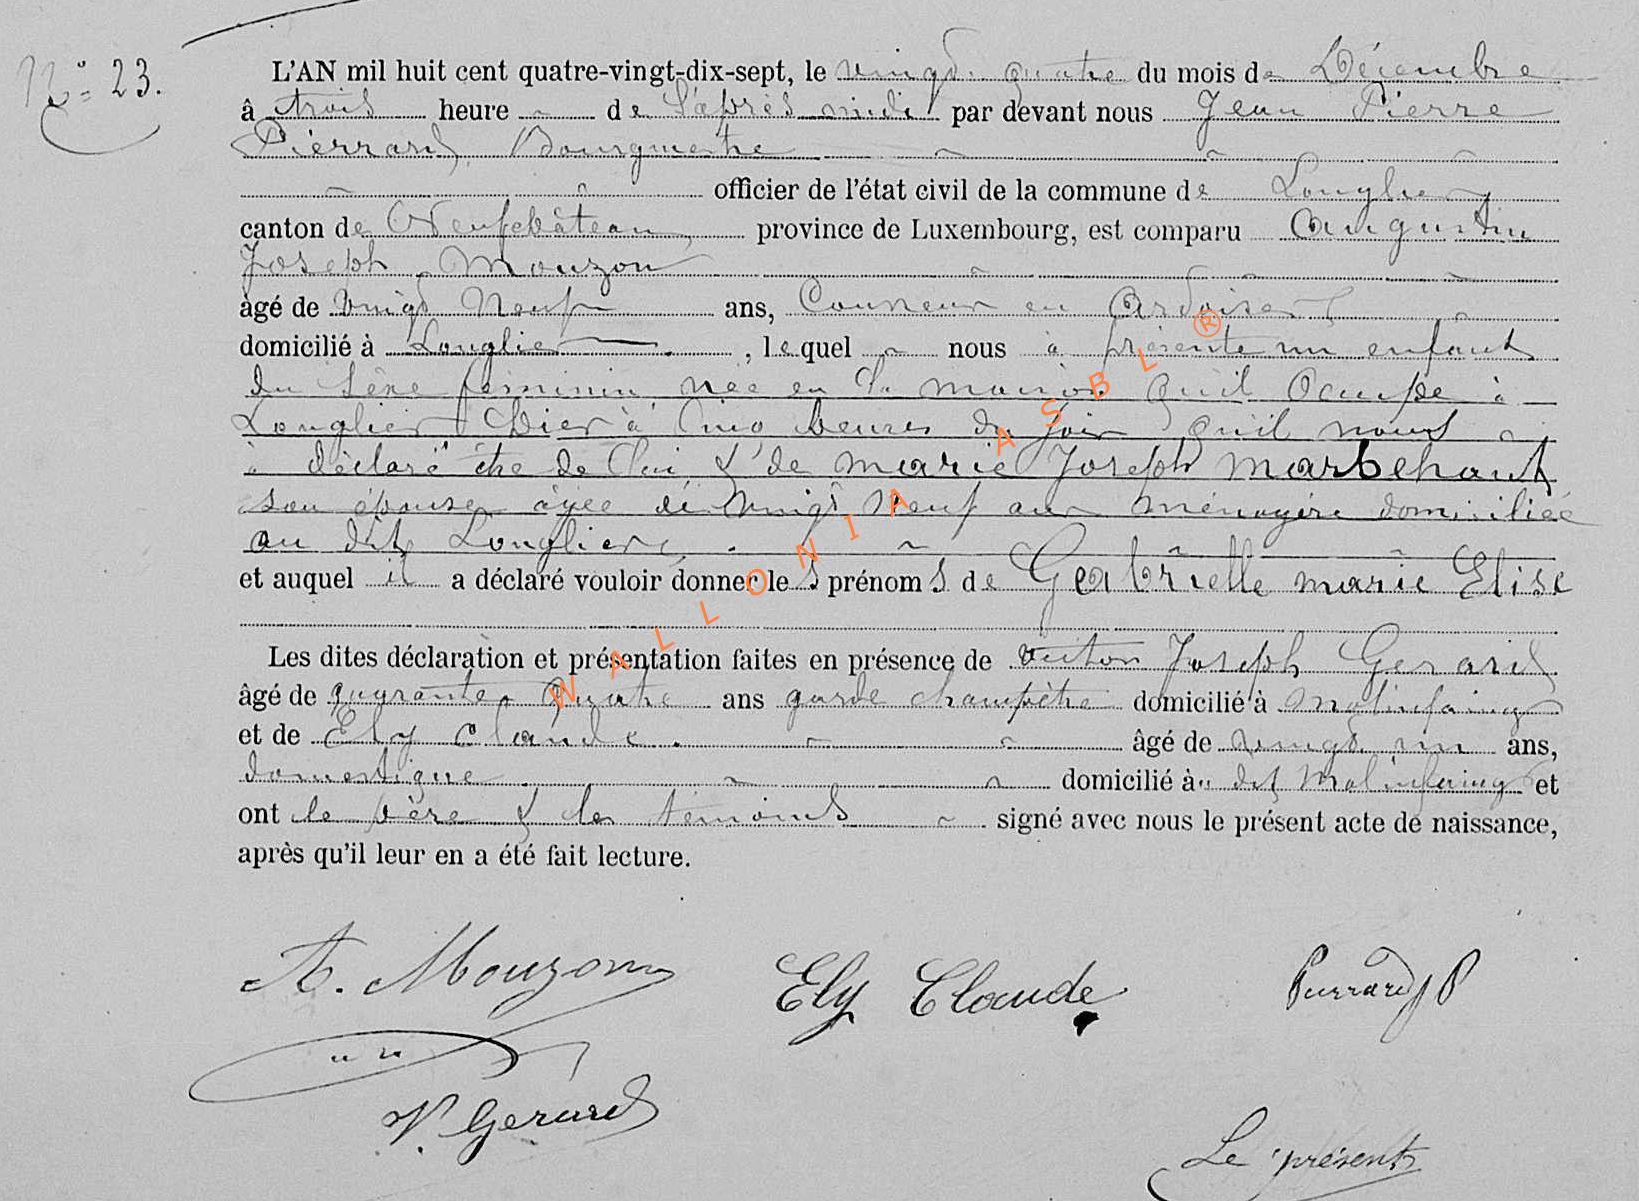 N° 23.
L'AN mil huit cent quatre-vingt-dix-sept, le vingt quatre du mois de Décembre
à trois heure de l'après midi par devant nous Jean Pierre
Pierrard, Bourgmestre
officier de l'état civil de la commune de Longlier
canton de Neufchâteau, province de Luxembourg, est comparu Augustin
Joseph Mouzon
âgé de vingt Neuf ans, Couvreur en Ardoises,
domicilié à Longlier, lequel nous a présenté un enfant
du sexe féminin, née en la maison qu'il Occupe à
Longlier Hier à Cinq heures du soir qu'il nous
à déclaré être de lui & de marie Joseph Marbehant
son épouse âgée de vingt neuf ans ménagère domiciliée
au dit Longlier,
et auquel il a déclaré vouloir donner les prénoms de Gabrielle marie Elise
Les dites déclaration et présentation faites en présence de Victor Joseph Gerard
âgé de quarante quatre ans garde champêtre domicilié à Molinfaing
et de Ely Claude. âgé de vingt un ans,
domestique domicilié à dit Molinfaing et
ont le père & les témoins signé avec nous le présent acte de naissance,
après qu'il leur en a été fait lecture.
A. Mouzon Ely Claude Pierrard J P
V. Gerard
Le présent
WALLONIA ASBL ®